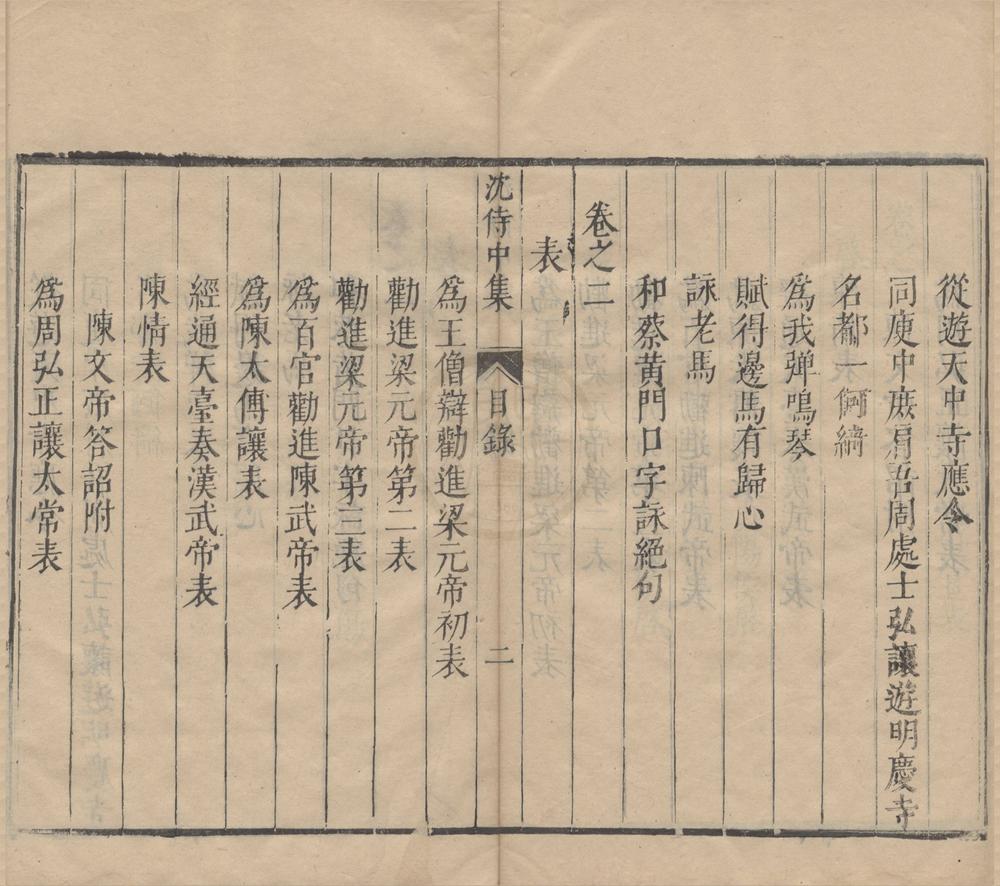 從遊天中寺應令
同庾中庶肩吾周處士弘讓遊明慶寺
名都一何綺
爲我彈鳴琴
賦得邊馬有歸心
詠老馬
和蔡黃門口字詠絕句
卷之二
表
沈侍中集 目錄 二
爲王僧辯勸進梁元帝初表
勸進梁元帝第二表
勸進梁元帝第三表
爲百官勸進陳武帝表
爲陳太傅讓表
經通天臺奏漢武帝表
陳情表
陳文帝答詔附
爲周弘正讓太常表